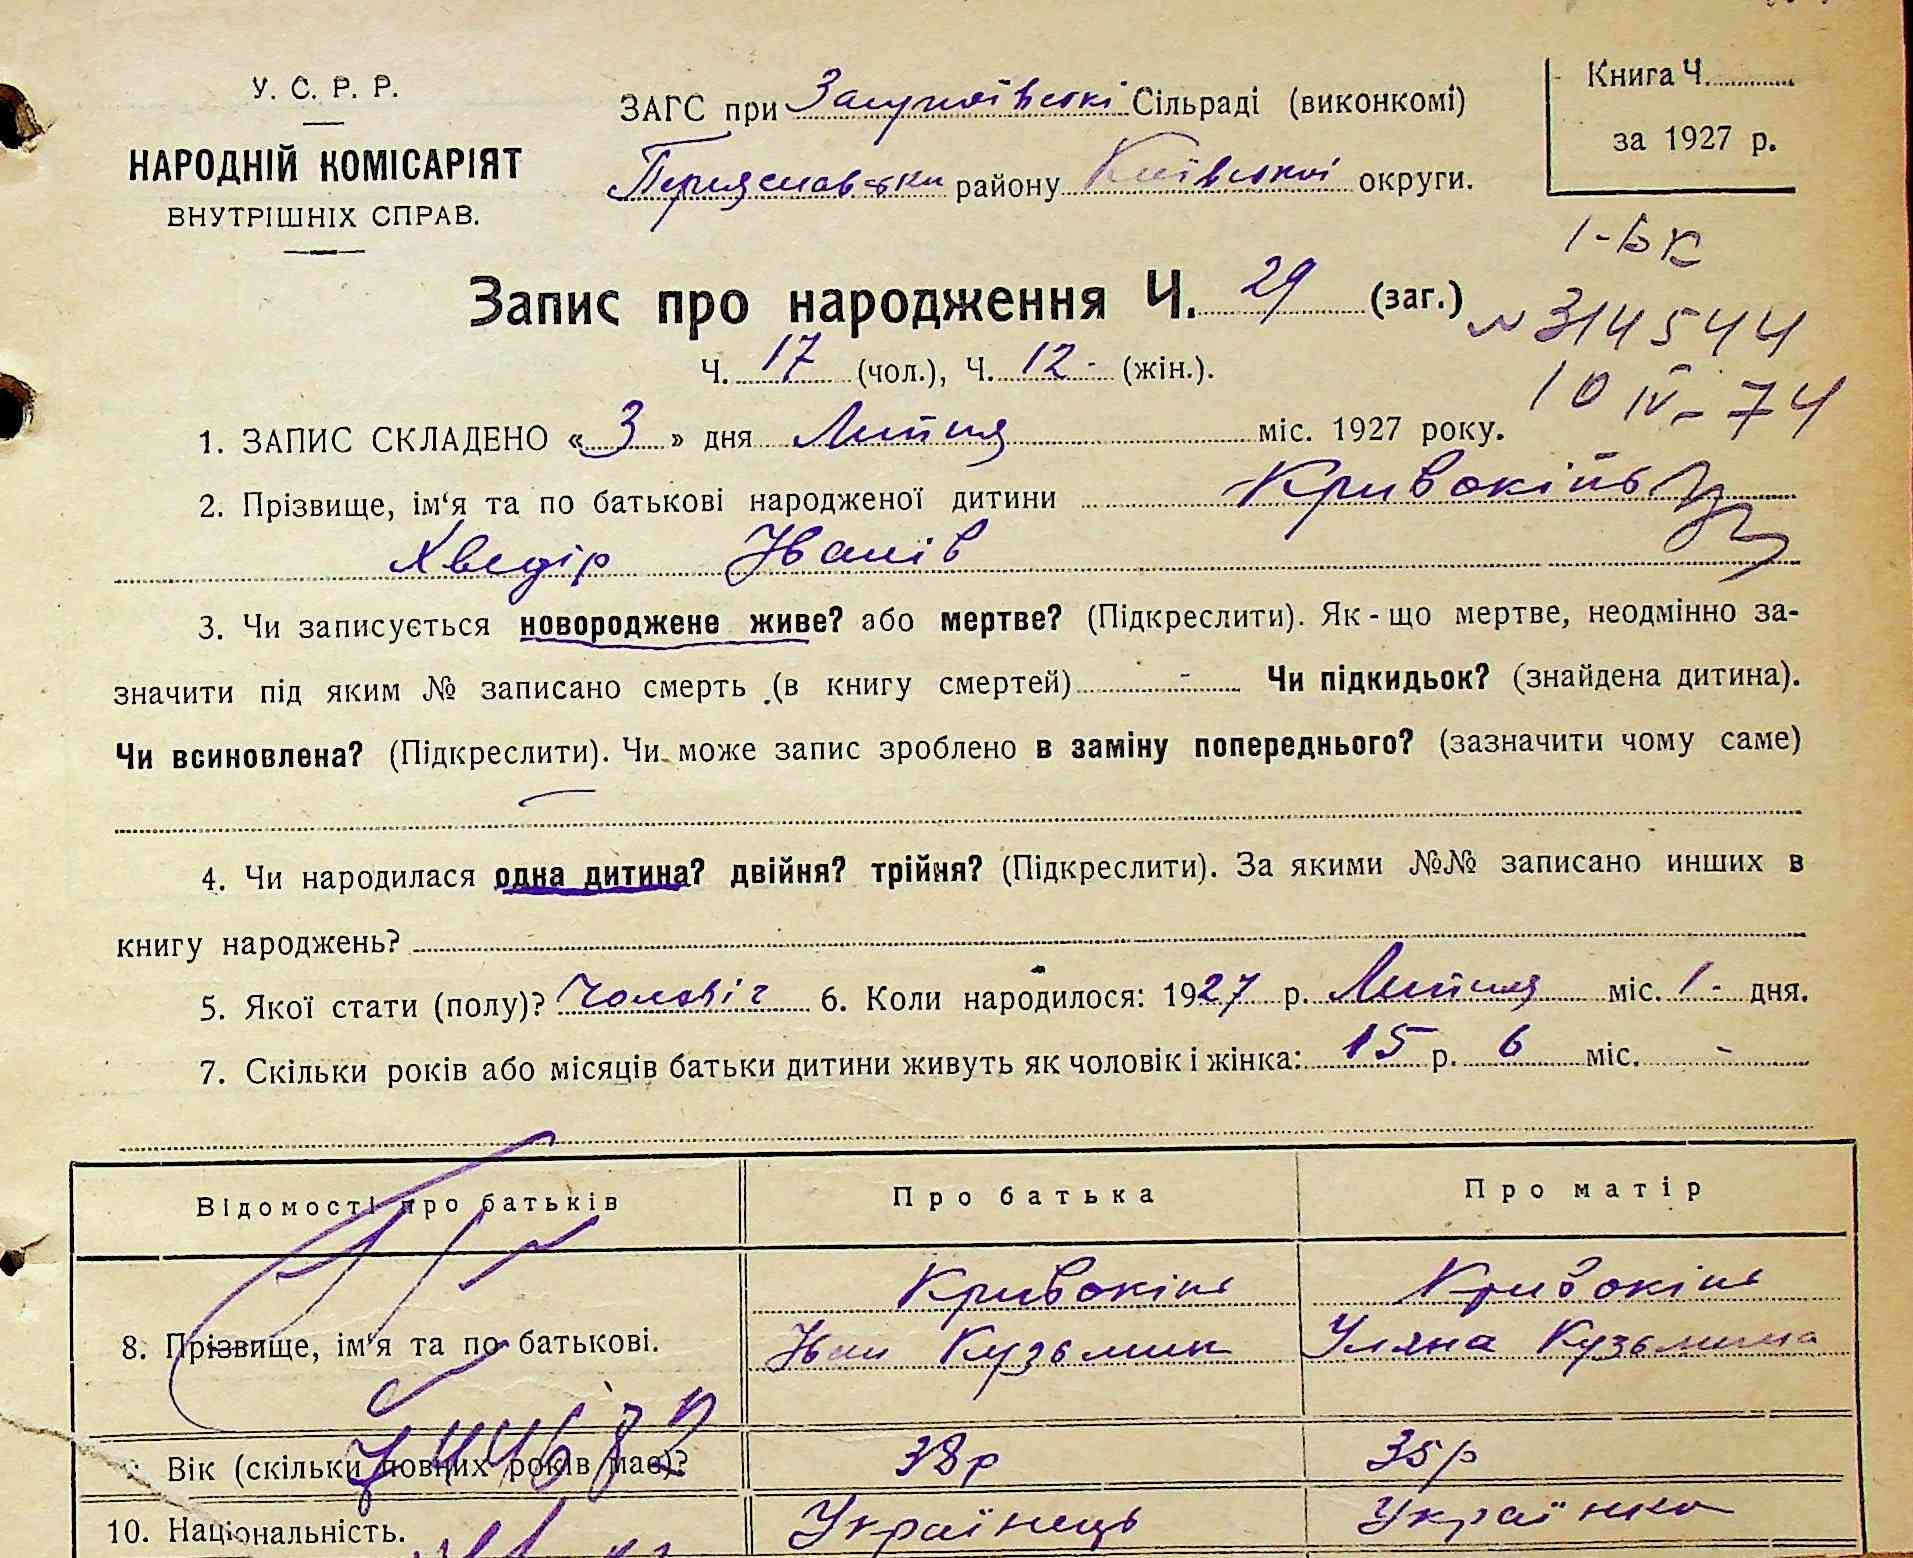 У. С. Р. Р.
НАРОДНІЙ КОМІСАРІЯТ
ВНУТРІШНІХ СПРАВ.
ЗАГС при Сільраді (виконкомі)
району Київської округи.
Книга Ч.
за 1927 р.
1-БК
N 314544
10 IV-74
Запис про народження Ч. 29 (заг.)
Ч. 17 (чол.), Ч. 12 - (жін.).
1. ЗАПИС СКЛАДЕНО « 3 » дня Липня міс. 1927 року.
2. Прізвище, ім'я та по батькові народженої дитини Кривокінь
Хведір Іванів
3. Чи записується новороджене живе? або мертве? (Підкреслити). Як-що мертве, неодмінно за-
значити під яким № записано смерть (в книгу смертей) - Чи підкидьок? (знайдена дитина).
Чи всиновлена? (Підкреслити). Чи може запис зроблено в заміну попереднього? (зазначити чому саме)
4. Чи народилася одна дитина? двійня? трійня? (Підкреслити). За якими №№ записано инших в
книгу народжень?
5. Якої стати (полу)? 6. Коли народилося: 1927 р. Липня міс. 1 - дня.
7. Скільки років або місяців батьки дитини живуть як чоловік і жінка: 15 р. 6 міс. -
Відомості про батьків Про батька Про матір
8. Прізвище, ім'я та по батькові. Кривокінь Кривокінь
Іван Кузьмин Уляна Кузьмина
Вік (скільки повних років має)? 38р 35р
10. Національність. Українець Українка